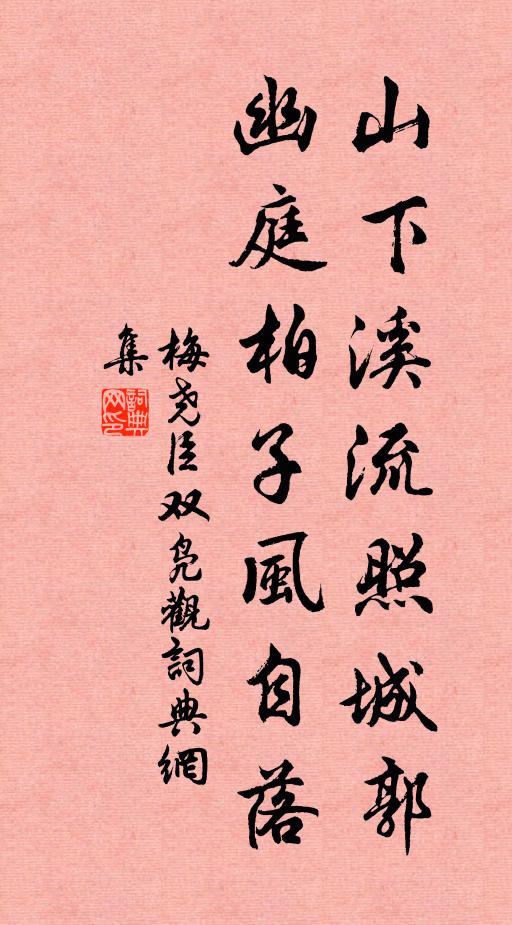 山下溪流照城郭
幽庭柏子風自落
梅尧臣双凫觀詞典網
集
詞典
网印